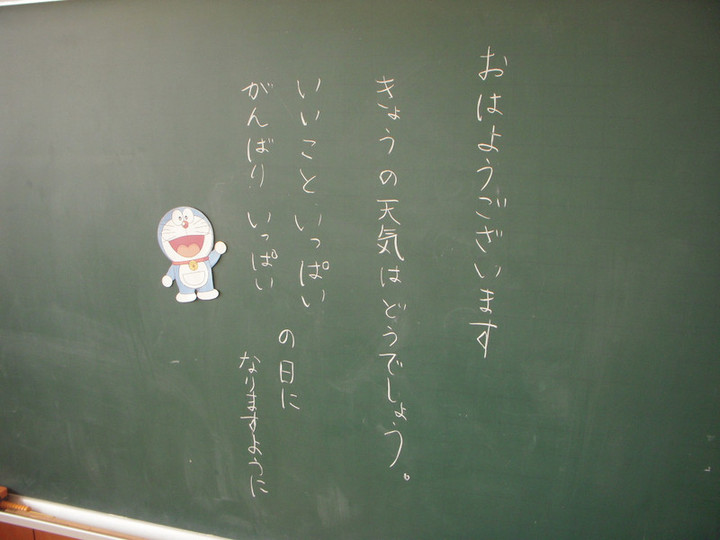 おはようございます
きょうの天気はどうでしょう。
いいこといっぱい
がんばりいっぱい
の日に
なりますように